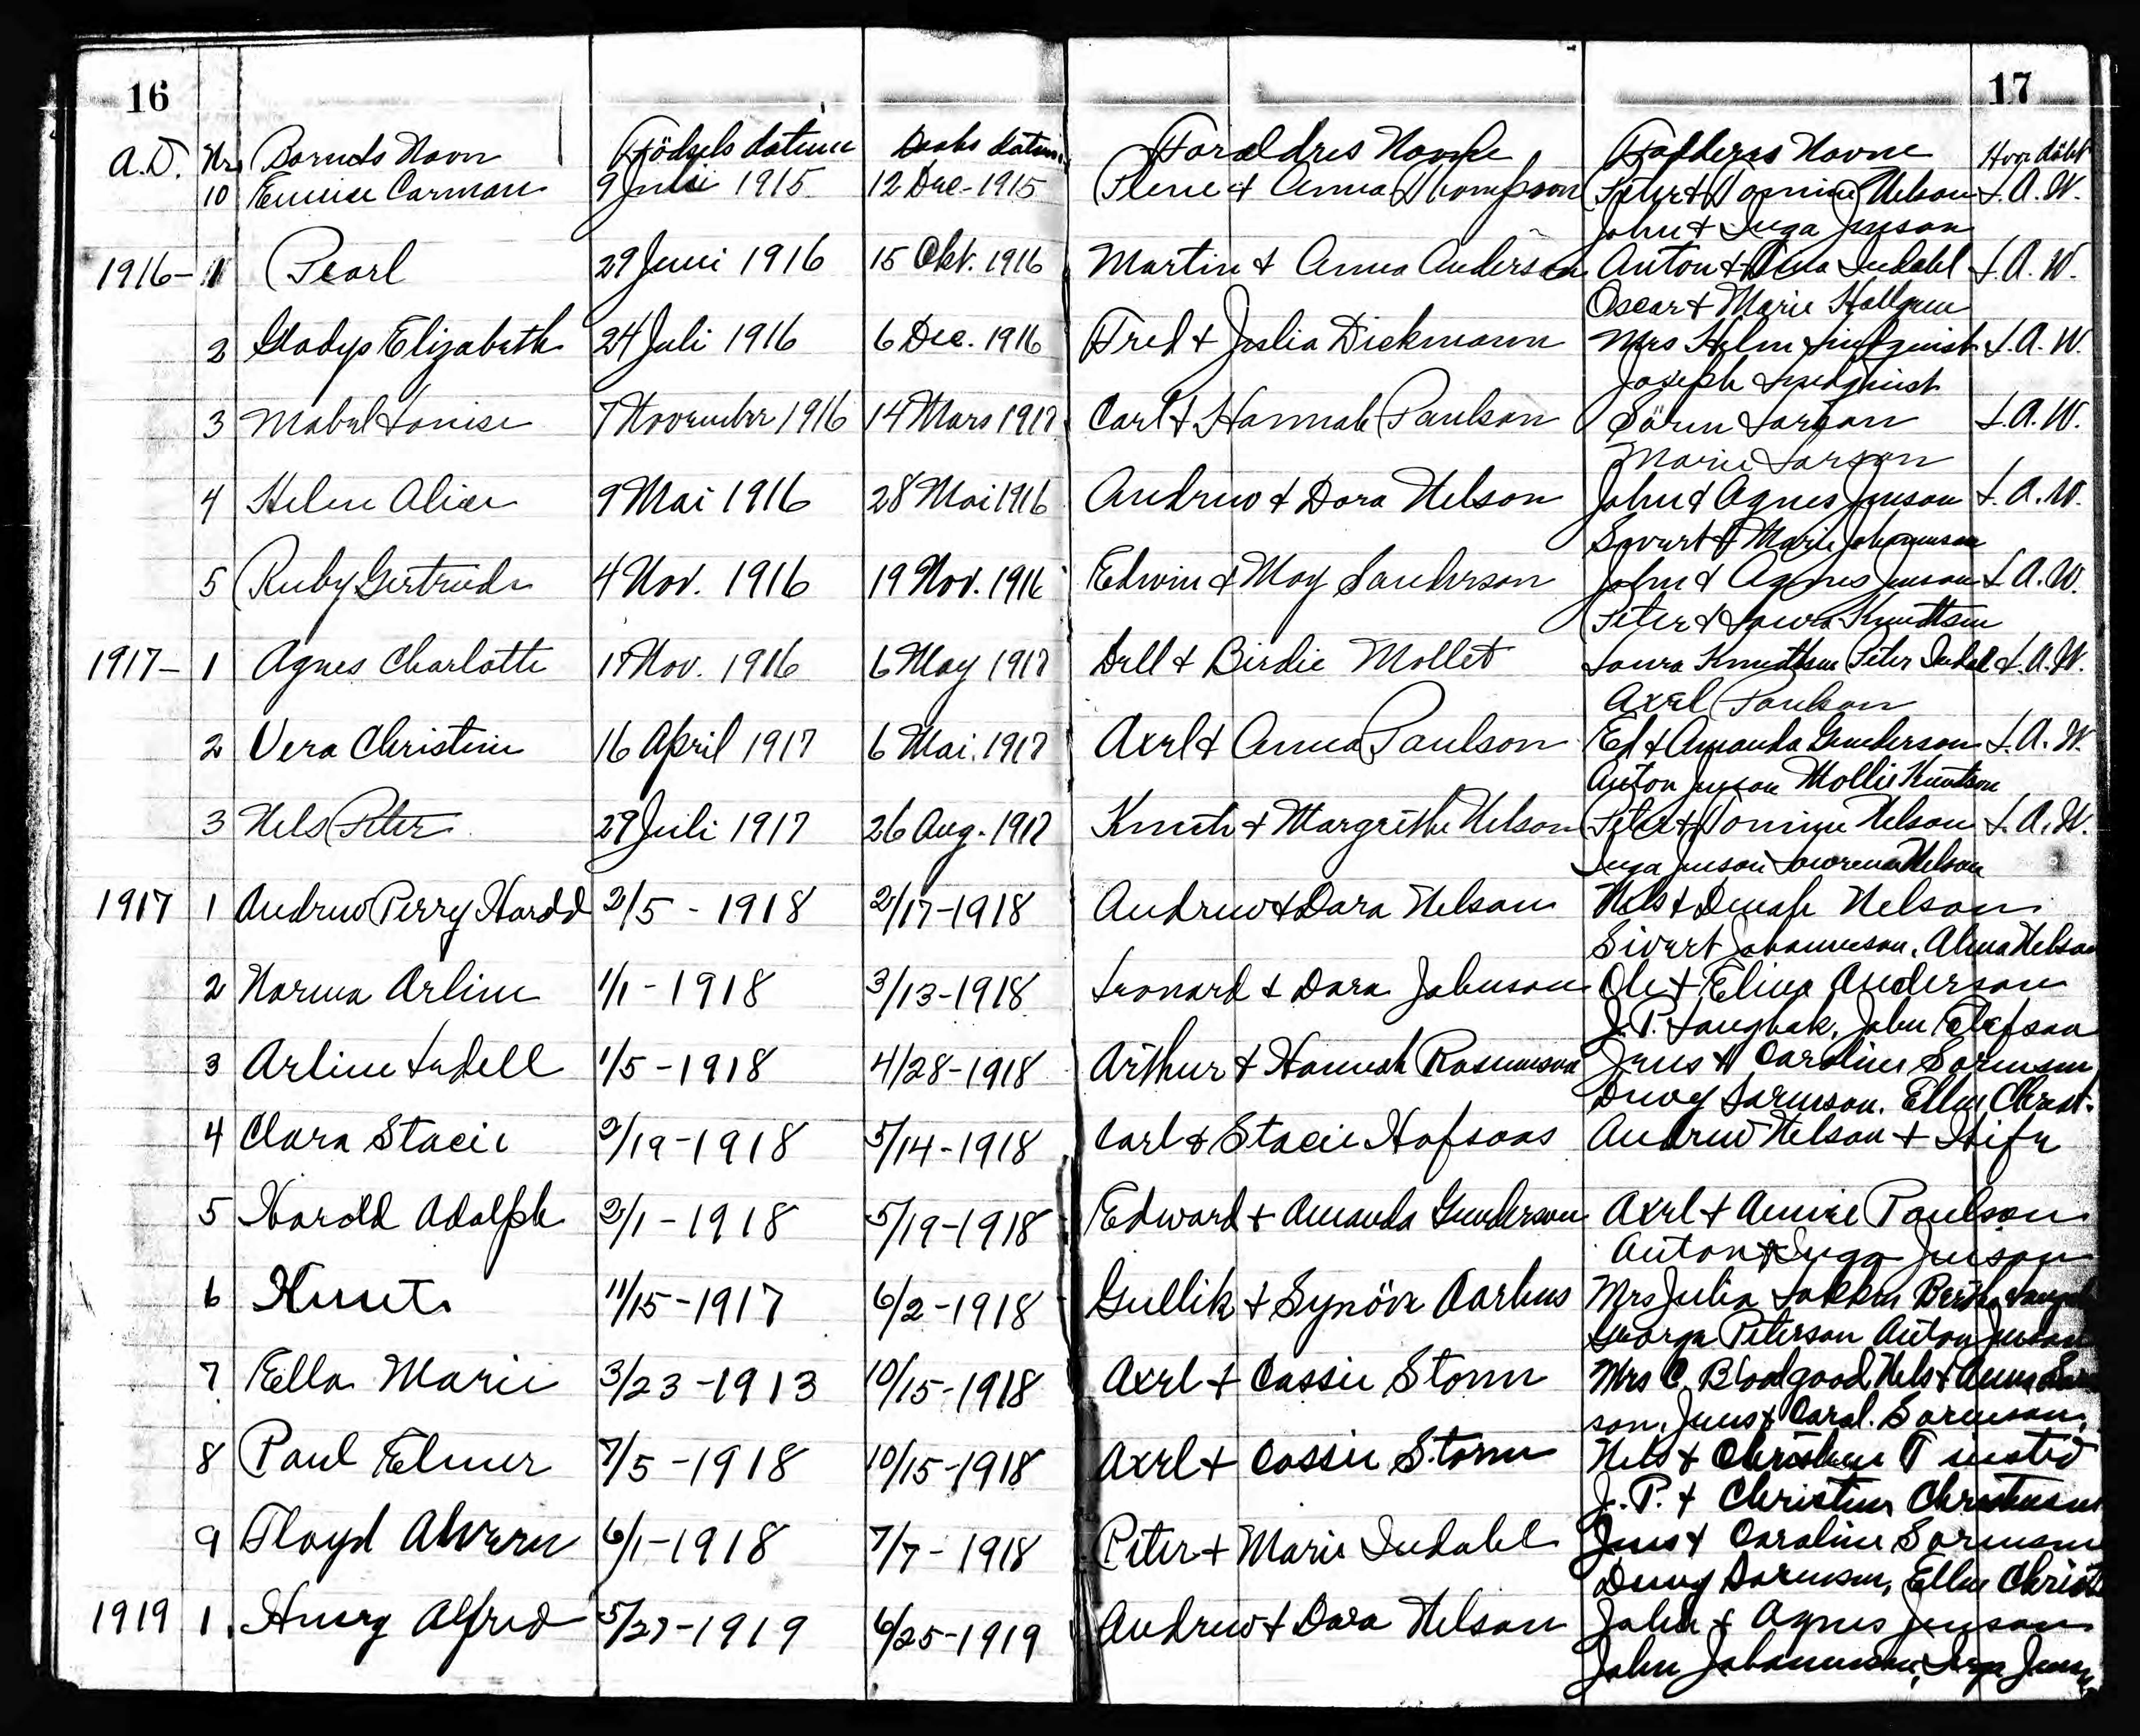 16 17
A.D. Nr. Barnets Navn Födsels datum Daabs datum Foraldres Navne Fadderes Navne Hvor döbt
10 Eunice Carman 9 Juni 1915 12 Dec - 1915 & Anna Thompson Peter & Nelson L.A.W.
John & Inga Jenson
1916 - 1 Pearl 29 Juni 1916 15 Okt. 1916 Martin & Anna Anderson Anton & Dina Indahl L.A.W.
Oscar & Marie Hallgren
2 Gladys Elizabeth 24 Juli 1916 6 Dec. 1916 Fred & Julia Diekmann Mrs L.A.W.
Joseph
3 Mabel Louise 7 November 1916 14 Mars 1917 Carl & Hannah Paulson Sören Larson L.A.W.
Marie Larson
4 Helen Alice 9 Mai 1916 28 Mai 1916 Andrew & Dora Nelson John & Agnes Jenson L.A.W.
Sivert & Marie Johannesen
5 Ruby Gertrude 4 Nov. 1916 19 Nov. 1916 Edwin & May Sanderson John & Agnes Jenson L.A.W.
Peter & Laura Knudtsen
1917 - 1 Agnes Charlotte Nov. 1916 6 May 1917 Dell & Birdie Mollet Laura Knudtsen Peter Indal L.A.W.
Axel Paulson
2 Vera Christine 16 April 1917 6 Mai. 1917 Axel & Anna Paulson Ed & Amanda Gunderson L.A.W.
Anton Jenson Mollie Knutson
3 Nels Peter 29 Juli 1917 26 Aug. 1917 & Margrethe Nelson Peter & Nelson L.A.W.
Inga Jenson Nelson
1917 1 Andrew Perry Harold 2/5 - 1918 2/17-1918 Andrew & Dora Nelson Nels & Nelson
Sivert Johannesen, Alma Nelson
2 Norma Arline 1/1 - 1918 3/13-1918 Leonard & Dora Johnson Ole & Eline Anderson
J.P. Langbak, John Olafson
3 Arline Ludell 1/5 - 1918 4/28-1918 Arthur & Hannah Rasmusson Jens & Caroline Sorenson
Dewey Sorenson, Ellen Christ.
4 Clara Stacie 2/19-1918 5/14-1918 Carl & Stacie Hofsoos Andrew Nelson & Wife
5 Harold Adolph 2/1 - 1918 5/19-1918 Edward & Amanda Gunderson Axel & Annie Paulson
Anton & Inga Jenson
6 Knut 11/15-1917 6/2-1918 Gullik & Synöve Aarhus Mrs Julia Bertha
George Peterson Anton Jenson
7 Ella Marie 3/23-1913 10/15-1918 Axel & Cassie Storm Mrs C. Bloodgood, Nels & Anna
son, Jens & Carol. Sorenson,
8 Paul Elmer 7/5-1918 10/15-1918 Axel & Cassie Storm Nels &
J.P. & Christine Christensen
9 Floyd Alvern 6/1-1918 7/7-1918 Peter & Marie Indahl Jens & Caroline Sorenson
Dewey Sorenson, Ellen Christ
1919 1. Henry Alfred 5/27-1919 6/25-1919 Andrew & Dora Nelson John & Agnes Jenson
John Johannesen, Inga Jenson